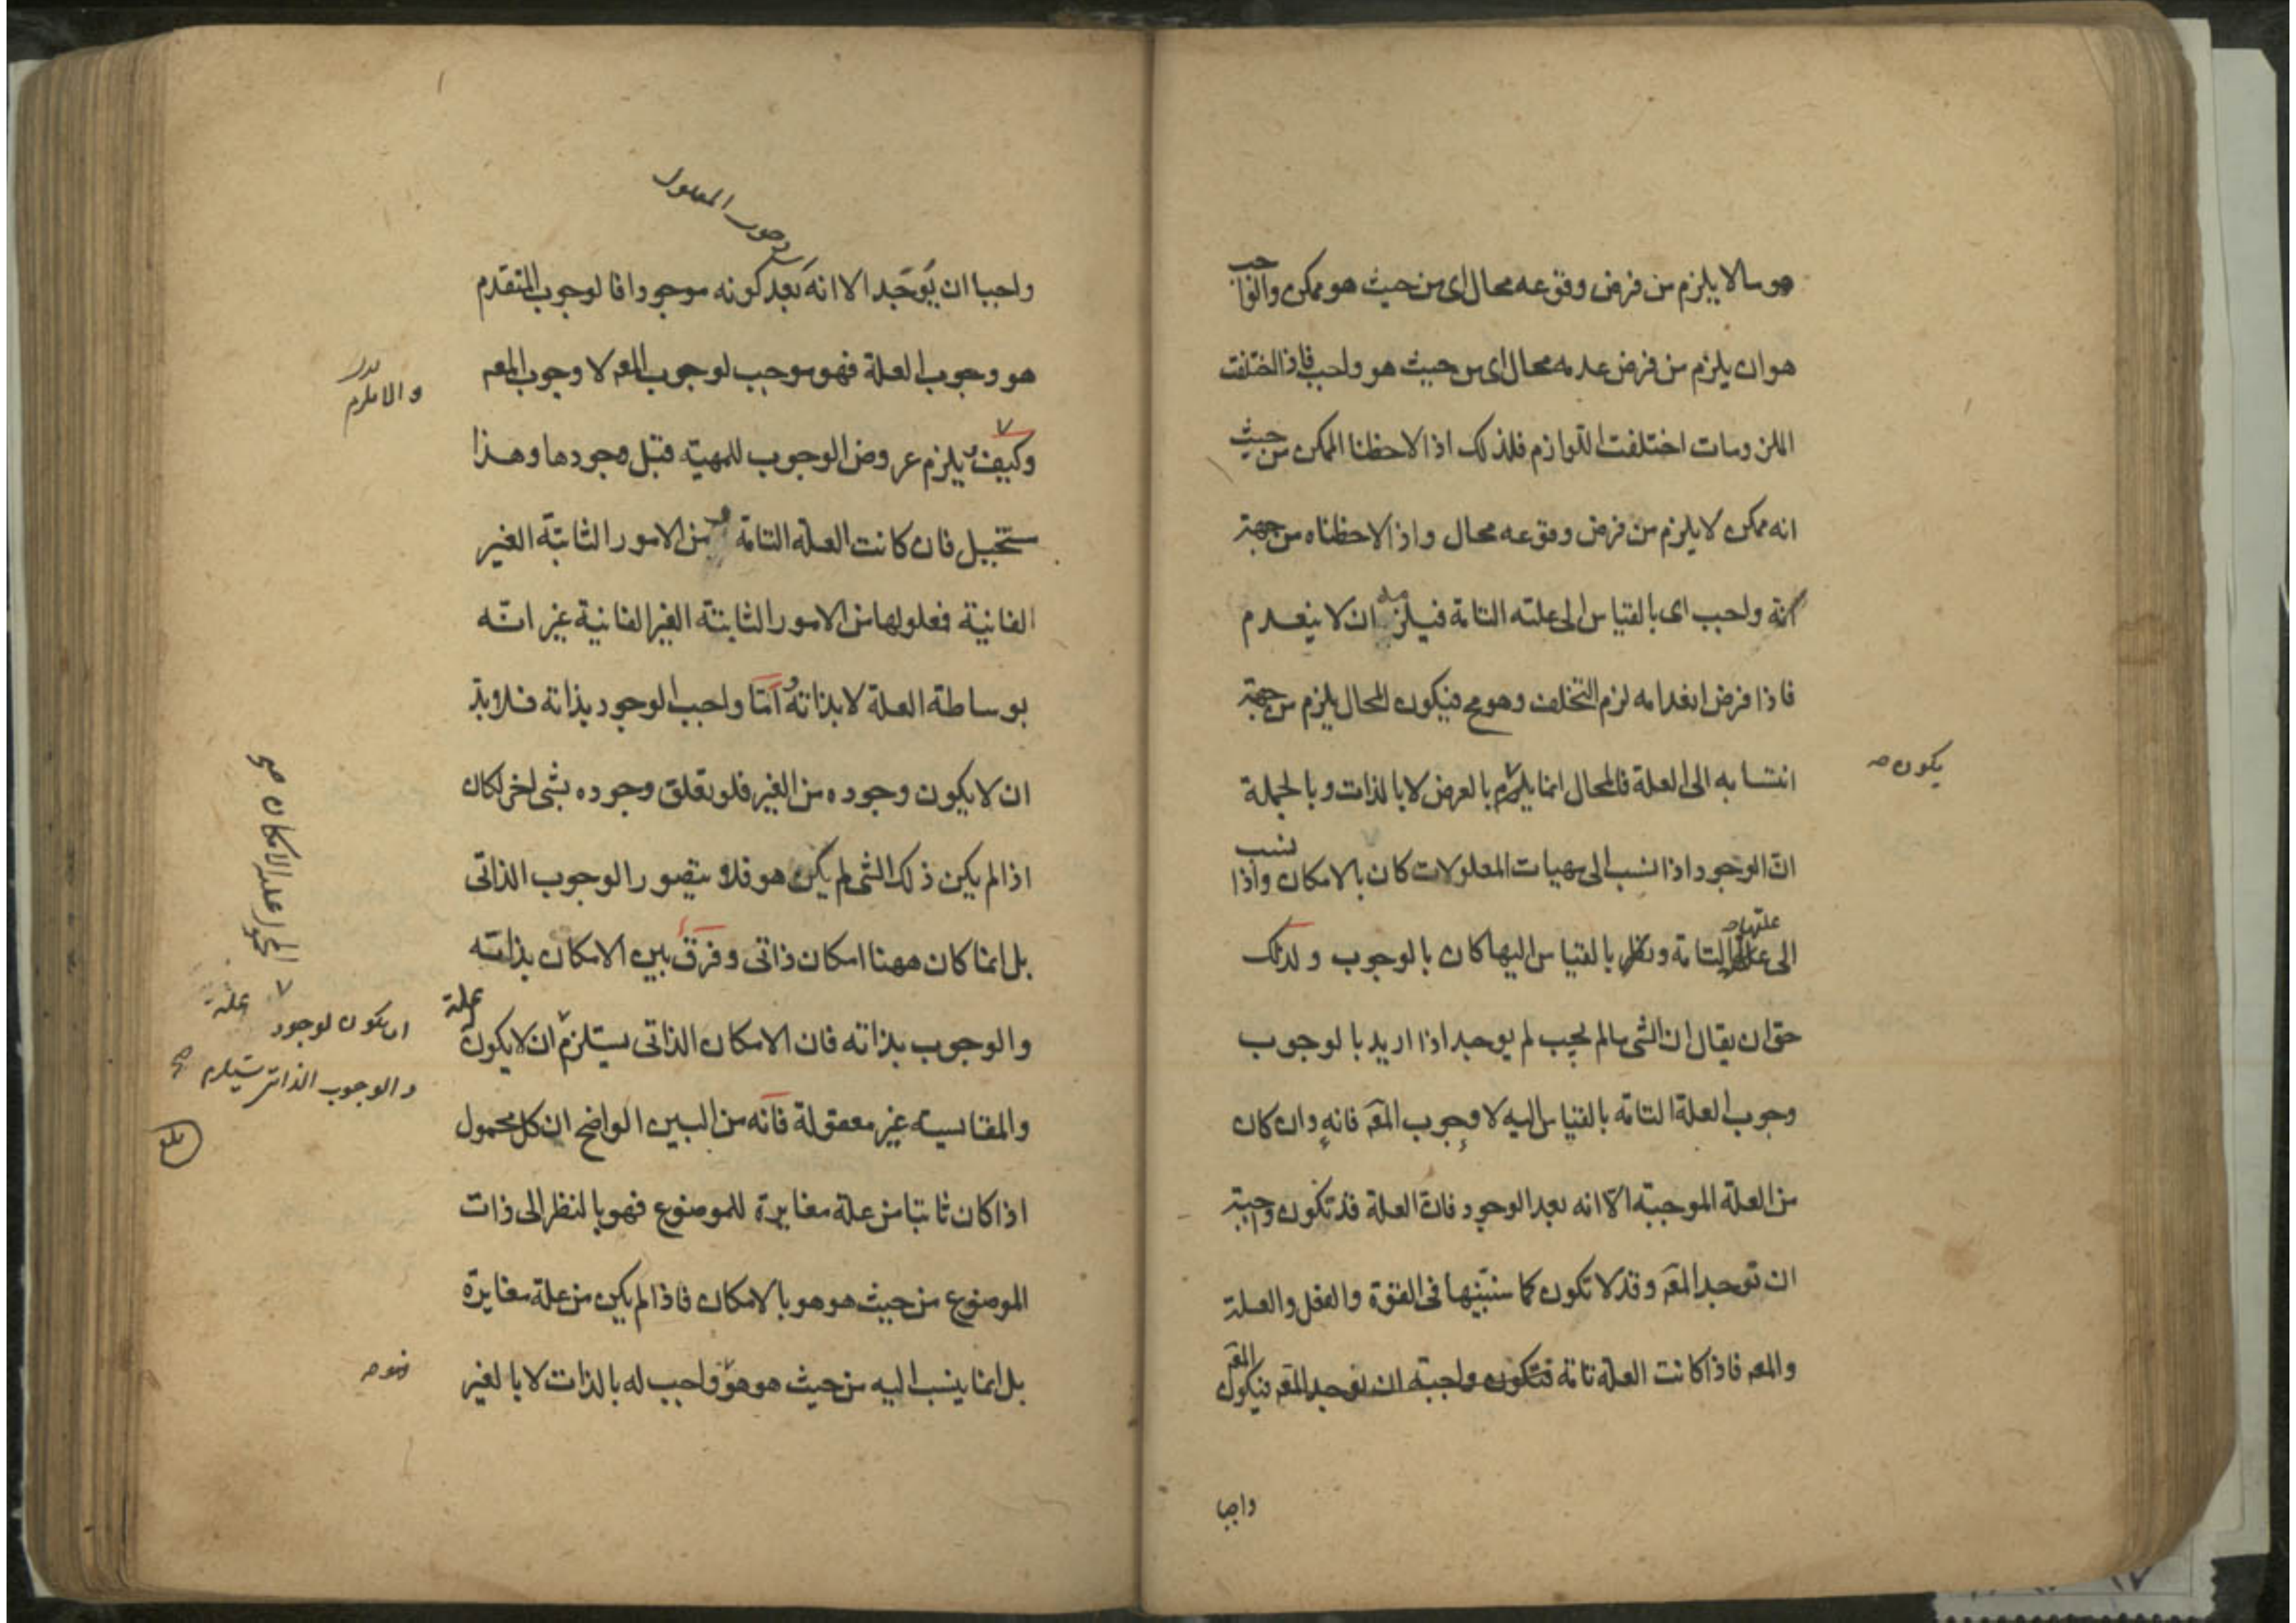 هو ما لا يلزم من فرض وقوعه محال اى من حيث هو ممكن والواجب
هو ان يلزم من فرض عدمه محال اى من حيث هو واجب فاذا اختلفت
الملزومات اختلفت اللوازم فلذلك اذا لاحظنا الممكن من حيث
انه ممكن لا يلزم من فرض وقوعه محال واذا لاحظناه من جهة
انه واجب اى بالقياس الى علته التامة فيلزم ان لا ينعدم
فاذا فرض انعدامه لزم التخلف وهو مح فيكون المحال يلزم من جهة
انتسابه الى العلة فالمحال انما يلزم بالعرض لا بالذات وبالجملة
يكون صه
ان الوجود اذا نسب الى مهيات المعلولات كان بالامكان واذا نسب
الى علتها التامة ونظر بالقياس اليها كان بالوجوب ولذلك
حق ان يقال ان الشئ ما لم يجب لم يوجد اذا اريد بالوجوب
وجوب العلة التامة بالقياس اليه لا وجوب المعه فانه وان كان
من العلة الموجبة الا انه بعد الوجود فان العلة قد تكون واجبة
ان توجد المعه وقد لا تكون كما سنبينها فى القوة والفعل والعلة
والمعه فاذا كانت العلة تامة فتكون واجبة ان توجد المعه فيكون المعه
واجبا
وجوب المعلول
واجبا ان يوجد الا انه بعد كونه موجودا فالوجوب المتقدم
هو وجوب العلة فهو موجب لوجوب المعه لا وجوب المعه
والا يلزم
وكيف يلزم عروض الوجوب للمهية قبل وجودها وهذا
مستحيل فان كانت العلة التامة من الامور الثابتة الغير
الفانية فمعلولها من الامور الثابتة الغير الفانية غير انه
بوساطة العلة لا بذاته واما واجب الوجود بذاته فلابد
ان لا يكون وجوده من الغير فلو تعلق وجوده بشئ اخر لكان
اذا لم يكن ذلك الشئ لم يكن هو فلا يتصور الوجوب الذاتى
بل انما كان ههنا امكان ذاتى وفرق بين الامكان بذاته
والوجوب بذاته فان الامكان الذاتى يستلزم ان لا يكون علة
ان يكون لوجود علة
والوجوب الذاتى يستلزم صح
والمقايسة غير معقولة فانه من البين الواضح ان كل محمول
اذا كان ثابتا من علة مغايرة للموضوع فهو بالنظر الى ذات
الموضوع من حيث هو هو بالامكان فاذا لم يكن من علة مغايرة
بل انما ينسب اليه من حيث هو هو واجب له بالذات لا بالغير
فهو صه